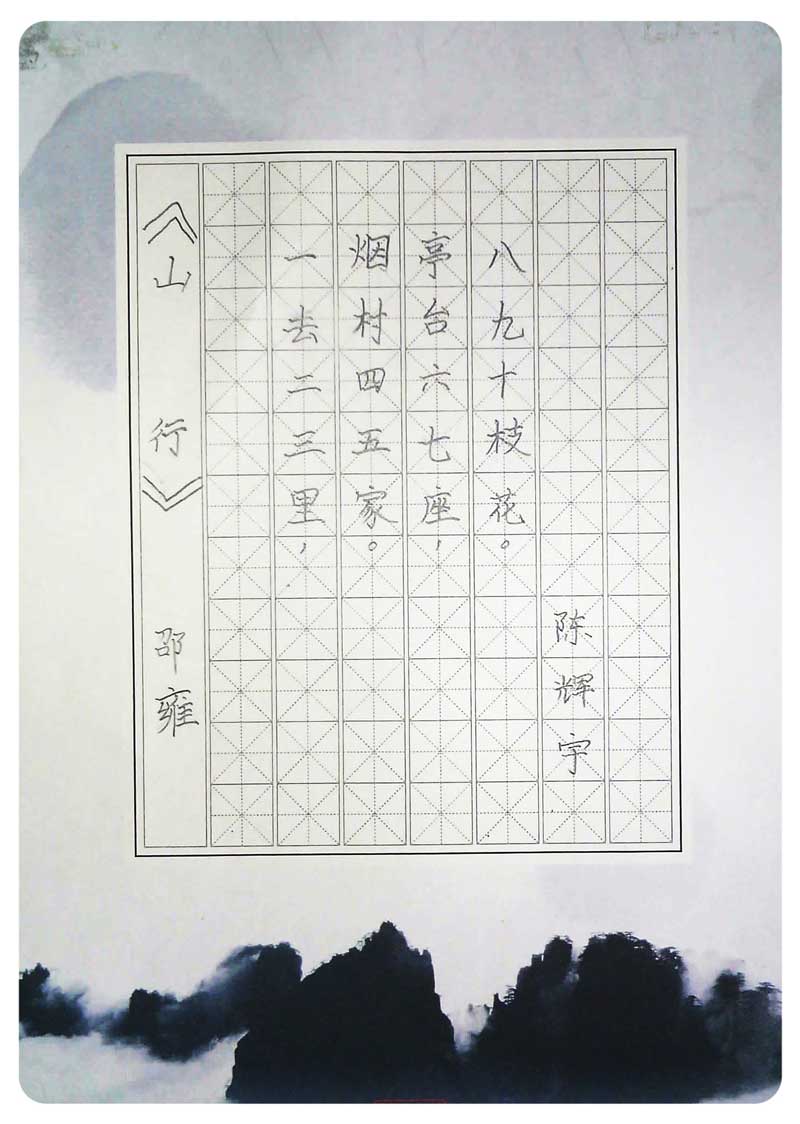 《山行》 邵雍
一去二三里，
烟村四五家。
亭台六七座，
八九十枝花。
陈辉宇